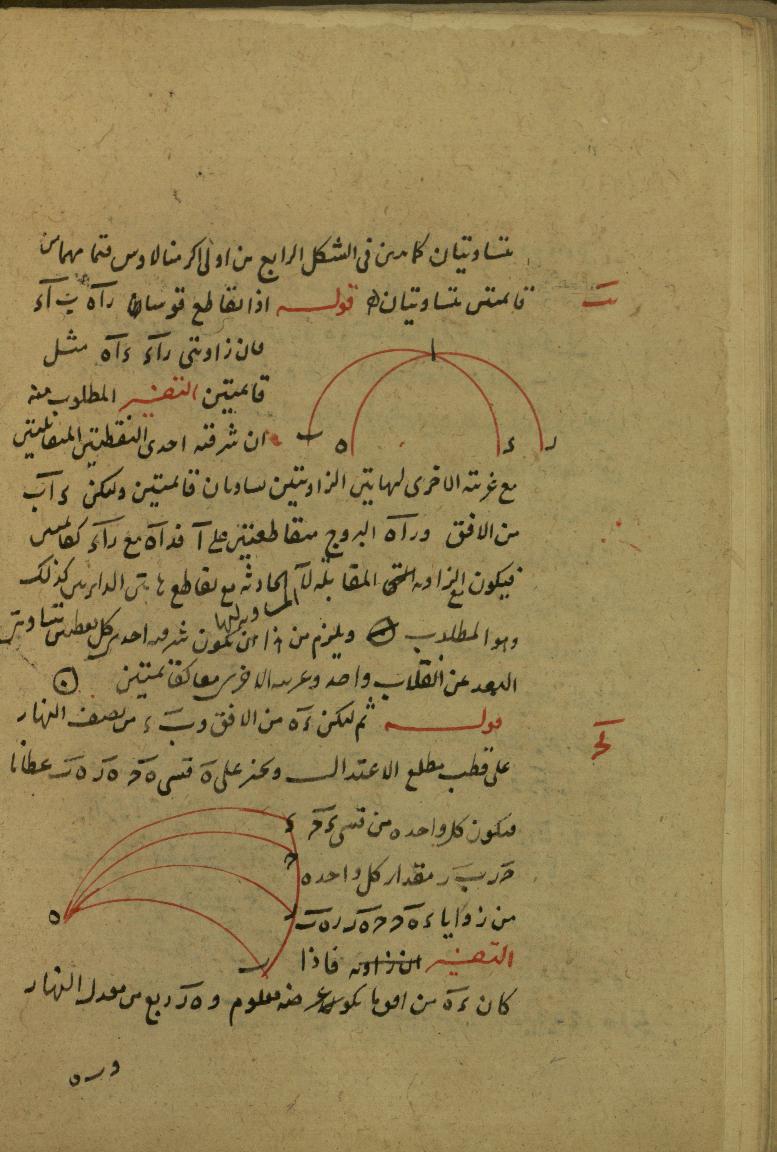 متساويتان كما مر في الشكل الرابع من اولى اكر منالاوس فتما مهما من
قائمتين متساويتان قوله اذا تقاطع قوسا راه ب اء
فان زاويتي راء ءاه مثل
قائمتين التفسير المطلوب منه
ان شرقته احدى النقطتين المتقابلتين
مع غربته الاخرى لهايتي الزاويتين يساويان قائمتين وليكن ء اب
من الافق وراه البروج متقاطعتين على ا فداه مع راء كقائمتين
فيكون الزاويه المقابله لا الحادثه مع تقاطع هاتين الدايرتين كذلك
وهو المطلوب ويلزم من ذا ان يكون شرقيه احدى كل نقطتين متساويتي
البعد عن انقلاب واحد وغربيه الاخرى معا كقائمتين
قوله ثم ليكن ءه من الافق وب ء من نصف النهار
على قطب مطلع الاعتدال ونجز على ه قسي ه ح ه ر ه ب عظاما
فيكون كل واحده من قسي ء ح
ح ر ب ر مقدار كل واحده
من زوايا ء ه ح ح ه ر ر ه ب
التفسير فاذا
كان ء ه من افق ما يكون عرضه معلوم و ه ر ربع من معدل النهار
و ر ه
ا
ب
ه
ء
ر
ء
ح
ر
ب
ه